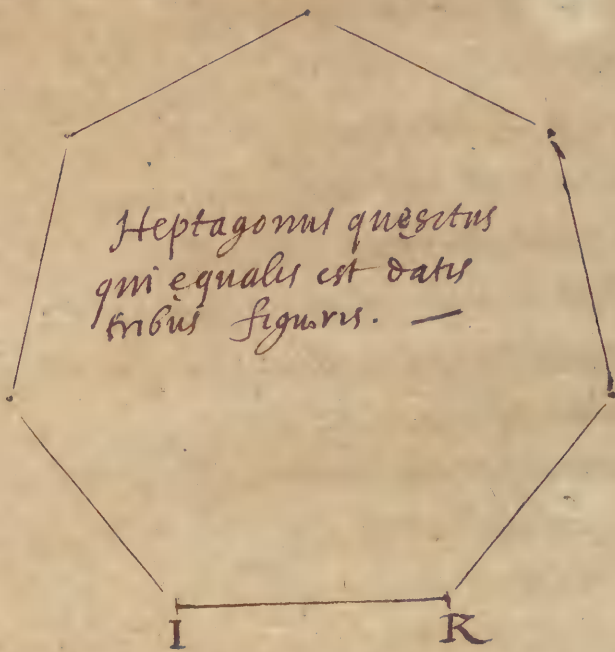 Heptagonus quęsitus
qui ęqualis est datis
tribus figuris. —
I R